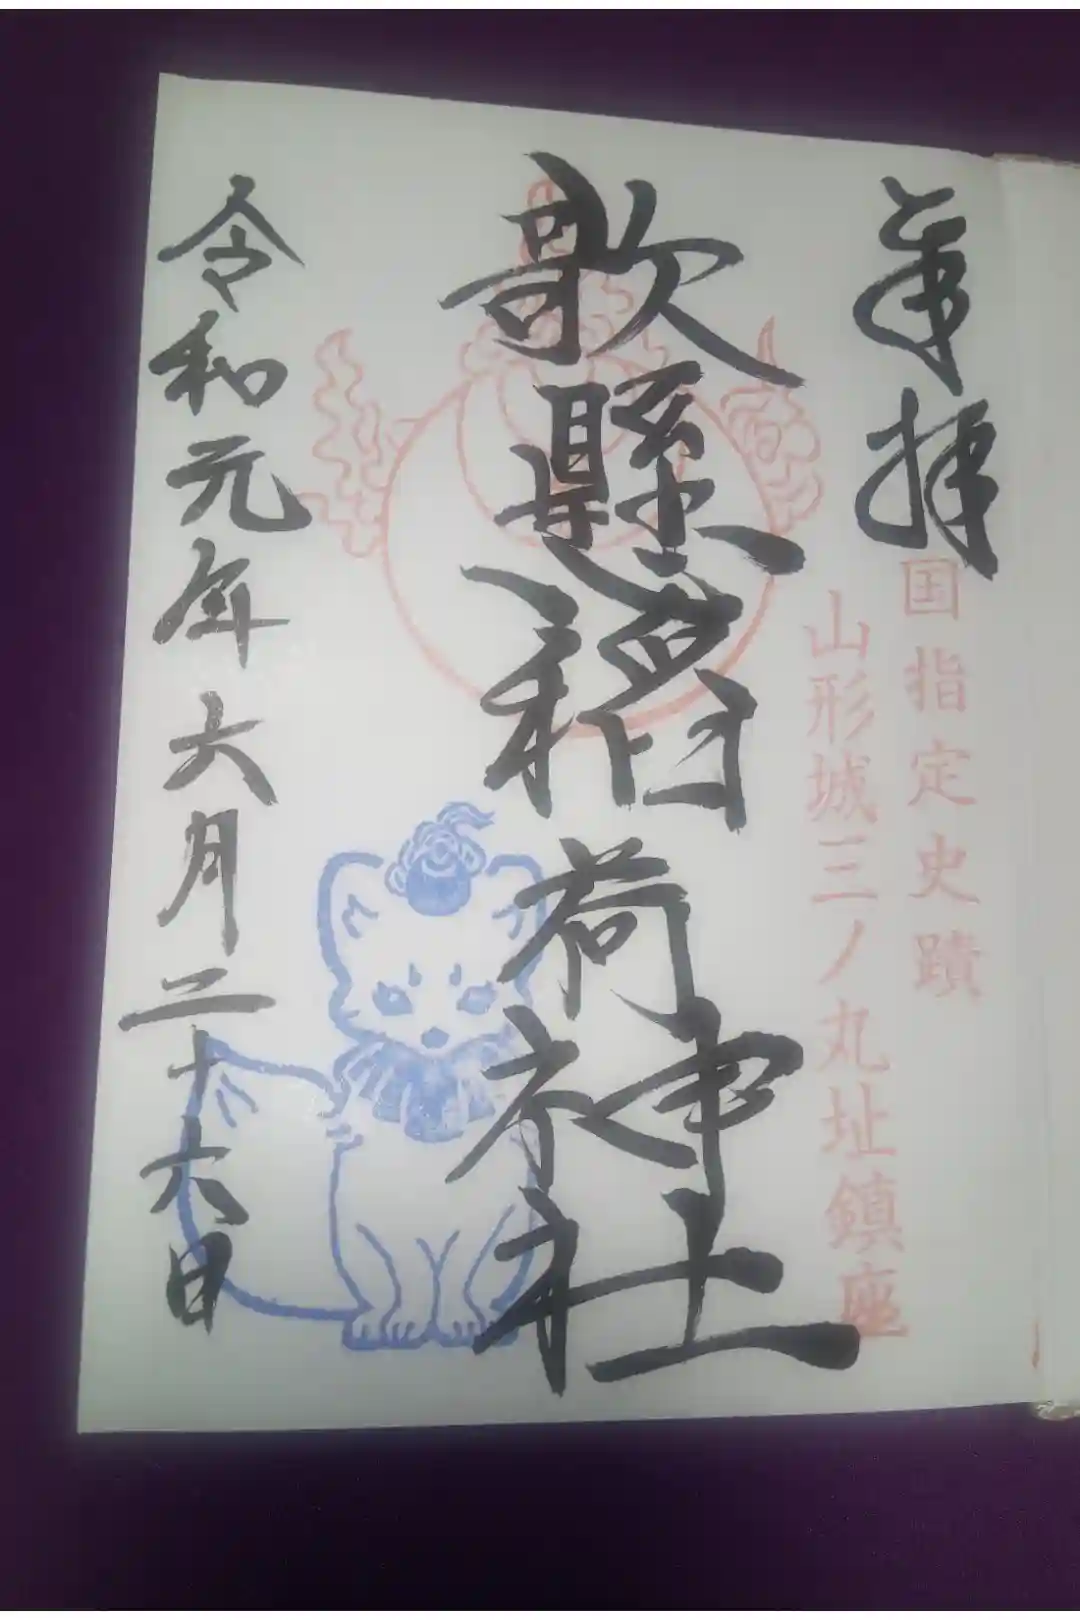 奉拝
国指定史蹟
山形城三ノ丸址鎮座
歌懸稲荷神社
令和元年六月二十六日